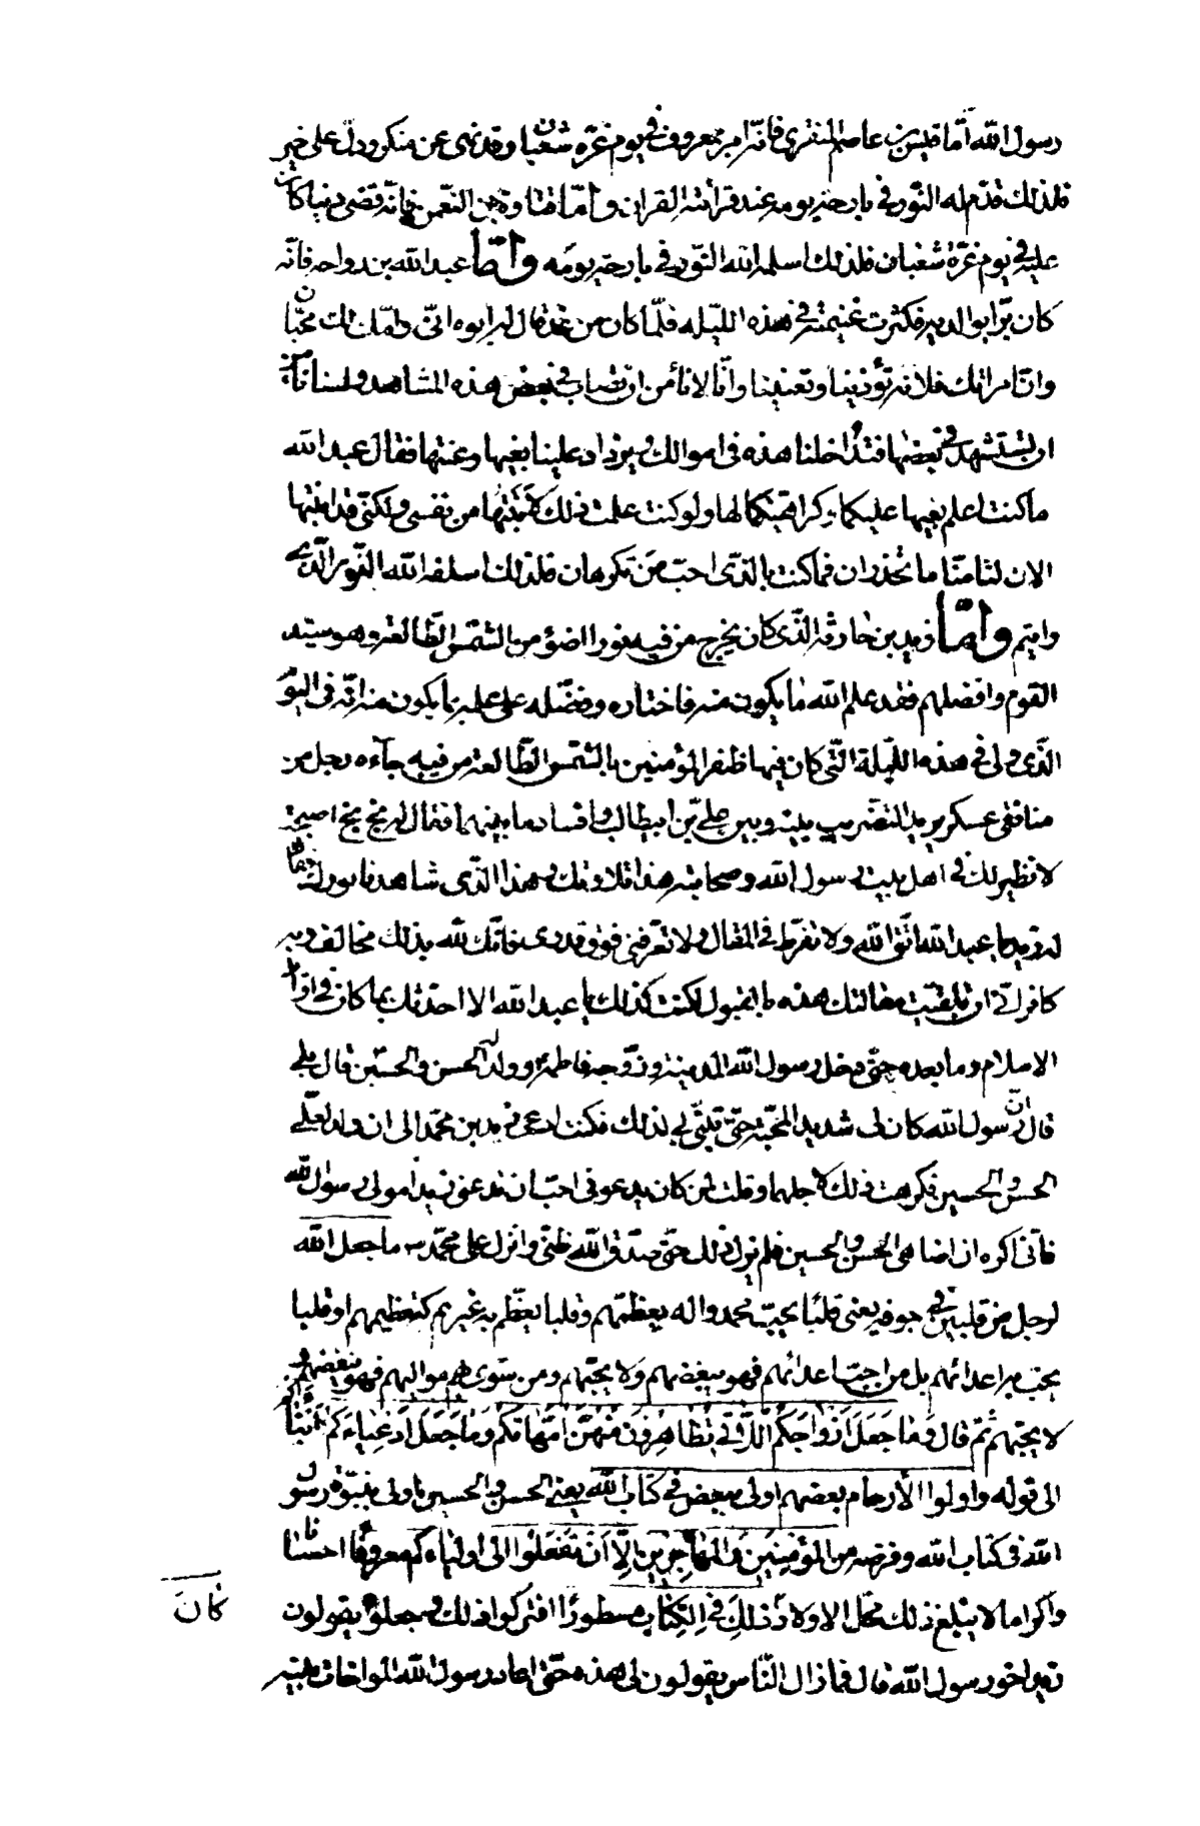 رسول الله امّا قيس بن عاصم المنقرى فانّه امر بمعروف فى يوم غرّة شعبان و قد نهى عن منكر و دلّ على خير
فلذلك قدّم له النّور فى بارحة يومه عند قرائته القران و امّا قتادة بن النعمن فانّه قضى دينا كان
عليه فى يوم غرّة شعبان فلذلك اسلفه الله النّور فى بارحة يومه و امّا عبد الله بن رواحه فانّه
كان برّا بوالديه فكثرت غنيمته فى هذه الليله فلمّا كان من غد قال له ابوه انّى و امّك لك محبّان
و انّ امراتك فلانه تؤذينا و تعنينا و انّا لا نأمن ان تصاب فى بعض هذه المشاهد و لسنا نأمن
ان تستشهد فى بعضها فتداخلنا هذه فى اموالك و يزداد علينا بغيها و عنتها فقال عبد الله
ما كنت اعلم بغيها عليكما و كراهتكما لها و لو كنت علمت ذلك لأبنتها من نفسى و لكنّى قد ابنتها
الان لتامنا ما تحذران فما كنت بالّذى احبّ من تكرهان فلذلك اسلفه الله النّور الّذى
رايتم و امّا زيد بن حارثه الّذى كان يخرج من فيه نورا اضوء من الشّمس الطّالعة و هو سيّد
القوم و افضلهم فقد علم الله ما يكون منه فاختاره و فضّله على علمه بما يكون منه انّه فى اليوم
الّذى ولى فى هذه الليلة الّتى كان فيها ظفر المؤمنين بالشّمس الطّالعة من فيه جآءه رجل من
منافقى عسكره يريد التضريب بينه و بين على بن ابيطالب و افساد ما بينهما فقال له بخ بخ اصبحت
لا نظير لك فى اهل بيت رسول الله و صحابته هذا بلاؤك و هذا الّذى شاهدناه نورك فقال
له زيد يا عبد الله اتّق الله و لا تفرط فى المقال و لا ترفعنى فوق قدرى فانّك لله بذلك مخالف و به
كافر و انّى ان تلقّيت مقالتك هذه بالقبول لكنت كذلك يا عبد الله الا احدّثك بما كان فى اوائل
الاسلام و ما بعده حتّى دخل رسول الله المدينة و زوّجه فاطمة و ولد له الحسن و الحسين قال بلى
قال انّ رسول الله كان لى شديد المحبّة حتّى تبنّانى لذلك فكنت ادعى زيد بن محمّد الى ان ولد لعلى
الحسن و الحسين فكرهت ذلك لاجلهما و قلت لمن كان يدعونى احبّ ان تدعونى زيدا مولى رسول الله
فانّى اكره ان اضاهى الحسن و الحسين فلم يزل ذلك حتّى صدّق الله ظنّى و انزل على محمّد ص ما جعل الله
لرجل من قلبين فى جوفه يعنى قلبًا يحبّ محمد و اله يعظّمهم و قلبا يعظّم به غيرهم كتعظيمهم او قلبا
يحبّ به اعدائهم بل من احبّ اعدائهم فهو يبغضهم و لا يحبّهم و من سوّى بهم مواليهم فهو يبغضهم و
لا يحبّهم ثمّ قال وَ مَا جَعَلَ اَزْوَاجَكُمُ اللّائى تُظَاهِرُونَ مِنْهُنَّ اُمَّهَاتِكُمْ وَ مَا جَعَلَ اَدْعِيَاءَكُمْ اَبْنَاءَكُم
الى قوله و اولوا الأرحام بعضهم اولى ببعض فى كتاب الله يعنى الحسن و الحسين اولى ببنوّة رسول
الله فى كتاب الله و فرضه من المؤمِنِينَ وَ المُهَاجِرِينَ اِلَّا اَنْ تَفْعَلُوا الى اوليَاءِكُم معروفًا احسانا
و اكراما لا يبلغ ذلك محلّ الاولاد كَانَ ذَلِكَ فى الكِتَابِ مسطورًا فتركوا ذلك و جعلوا يقولون
زيد اخو رسول الله قال فما زال النّاس يقولون لى هذه حتّى اعاد رسول الله المواخات بينه
كَانَ